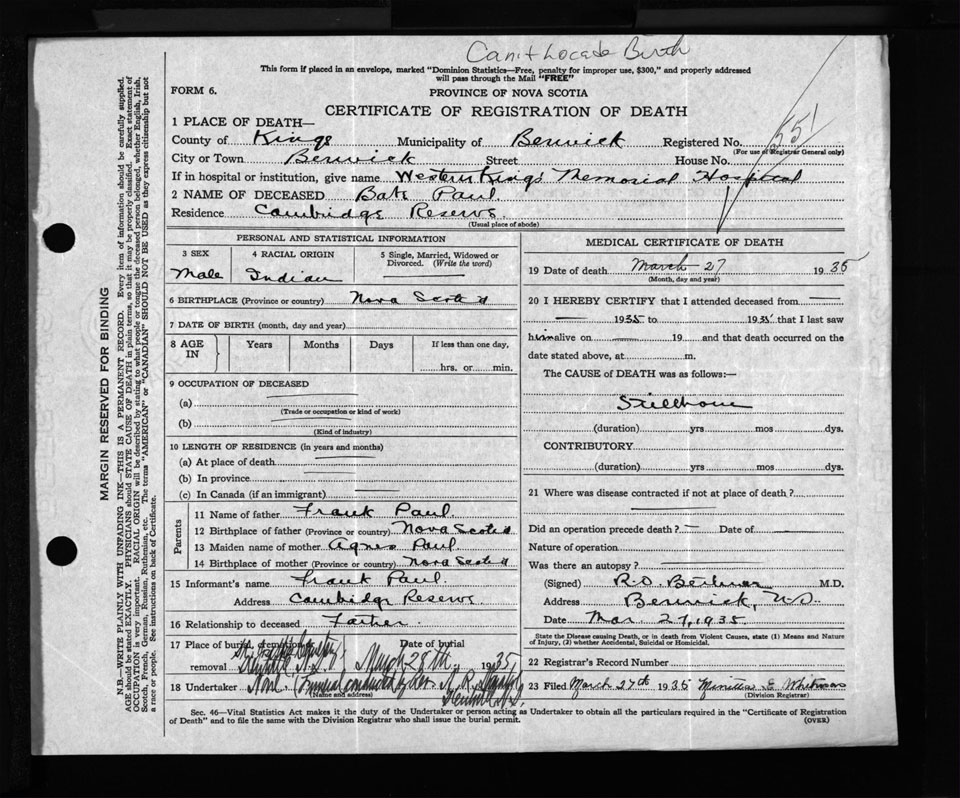 Can't Locate Birth
This form if placed in an envelope, marked "Dominion Statistics—Free, penalty for improper use, $300," and properly addressed
will pass through the Mail "FREE"
FORM 6.
PROVINCE OF NOVA SCOTIA
CERTIFICATE OF REGISTRATION OF DEATH
551
1 PLACE OF DEATH—
County of Kings Municipality of Berwick Registered No.
(For use of Registrar General only)
City or Town Berwick Street House No.
If in hospital or institution, give name Western Kings Memorial Hospital
2 NAME OF DECEASED Paul
Residence Cambridge Reserve
(Usual place of abode)
PERSONAL AND STATISTICAL INFORMATION
3 SEX 4 RACIAL ORIGIN 5 Single, Married, Widowed or Divorced. (Write the word)
Male Indian
6 BIRTHPLACE (Province or country) Nova Scotia
7 DATE OF BIRTH (month, day and year)
8 AGE IN Years Months Days If less than one day,
hrs. or min.
9 OCCUPATION OF DECEASED
(a)
(Trade or occupation or kind of work)
(b)
(Kind of industry)
10 LENGTH OF RESIDENCE (in years and months)
(a) At place of death
(b) In province
(c) In Canada (if an immigrant)
Parents
11 Name of father Frank Paul
12 Birthplace of father (Province or country) Nova Scotia
13 Maiden name of mother Agnes Paul
14 Birthplace of mother (Province or country) Nova Scotia
15 Informant's name Frank Paul
Address Cambridge Reserve
16 Relationship to deceased Father
17 Place of burial, cremation or Date of burial
removal March 28th, 1935
18 Undertaker None Funeral conducted by Rev. A. R.
(Name and address)
MEDICAL CERTIFICATE OF DEATH
19 Date of death March 27 1935
(Month, day and year)
20 I HEREBY CERTIFY that I attended deceased from —
— 1935 to 1935 that I last saw
him alive on — 19 and that death occurred on the
date stated above, at m.
The CAUSE of DEATH was as follows:—
Stillborn
(duration) yrs mos dys.
CONTRIBUTORY
(duration) yrs mos dys.
21 Where was disease contracted if not at place of death?
Did an operation precede death? — Date of
Nature of operation
Was there an autopsy?
(Signed) R.O. M.D.
Address Berwick, N.S.
Date Mar. 27, 1935
State the Disease causing Death, or in death from Violent Causes, state (1) Means and Nature
of Injury, (2) whether Accidental, Suicidal or Homicidal.
22 Registrar's Record Number
23 Filed March 1935
(Division Registrar)
Sec. 46—Vital Statistics Act makes it the duty of the Undertaker or person acting as Undertaker to obtain all the particulars required in the "Certificate of Registration
of Death" and to file the same with the Division Registrar who shall issue the burial permit.
(OVER)
MARGIN RESERVED FOR BINDING
N.B.—WRITE PLAINLY WITH UNFADING INK—THIS IS A PERMANENT RECORD. Every item of information should be carefully supplied.
AGE should be stated EXACTLY. PHYSICIANS should STATE CAUSE OF DEATH in plain terms, so that it may be properly classified. Exact statement of
OCCUPATION is very important. RACIAL ORIGIN will be described by stating to what people or tongue the deceased person belonged, whether English, Irish,
Scotch, French, German, Russian, Ruthenian, etc. The terms "AMERICAN" or "CANADIAN" SHOULD NOT BE USED as they express citizenship but not
a race or people. See instructions on back of Certificate.